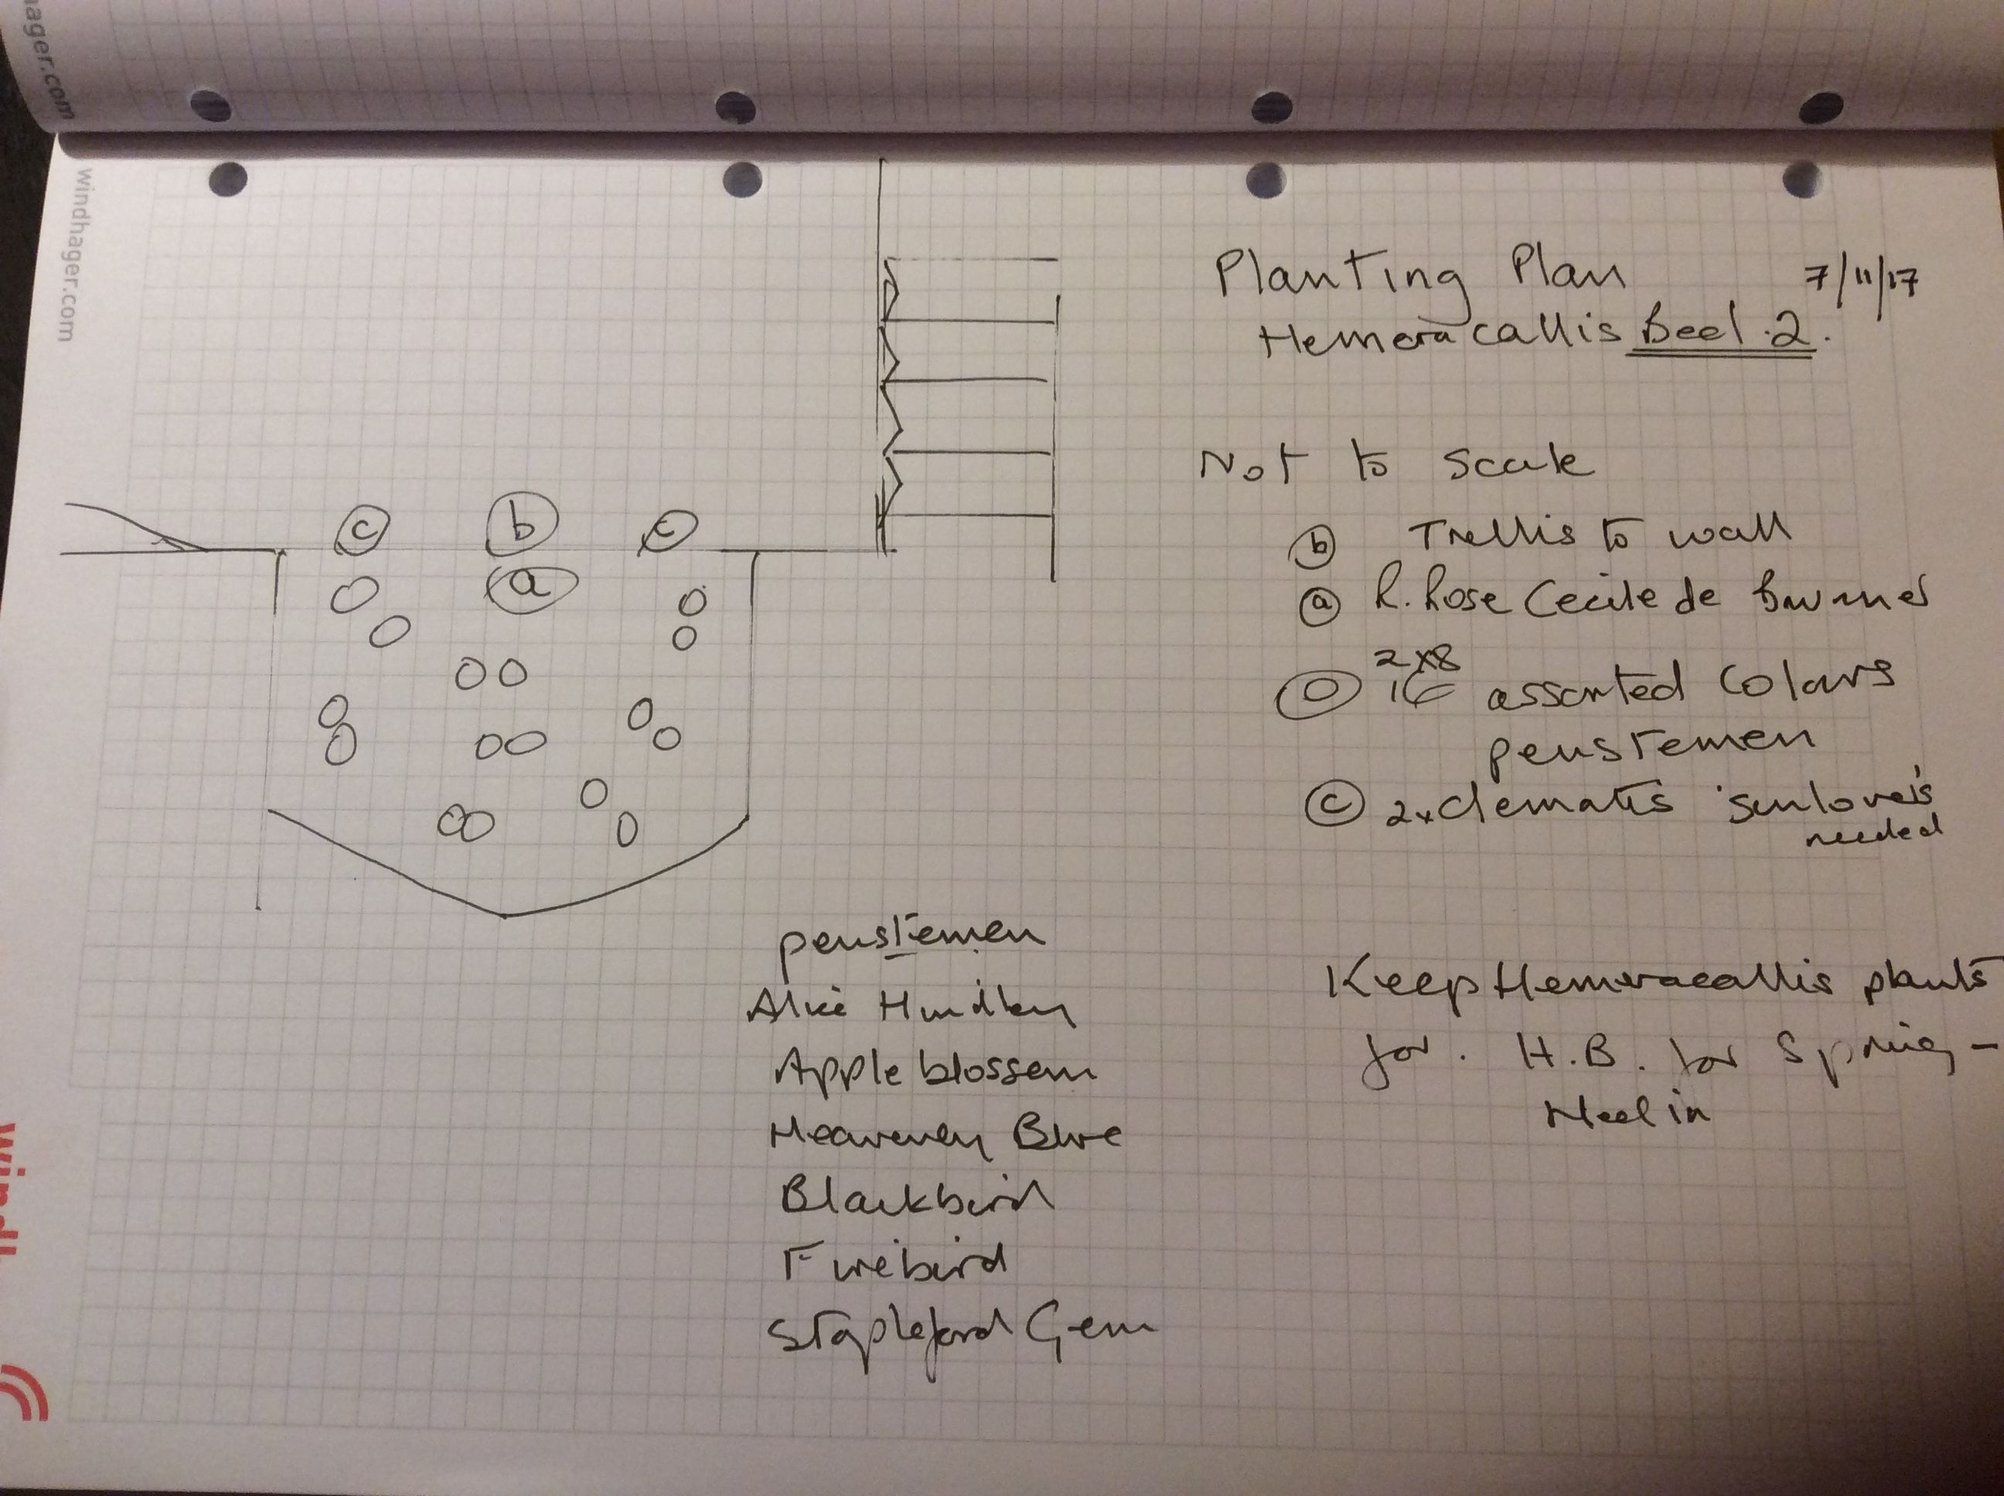 ager.com
windhager.com
Planting Plan 7/11/17
Hemeracallis Bed .2.
Not to scale
c b c
a
b Trellis to wall
a R. Rose Cecile de
O 2x8 16 assorted colours
penstemen
c 2x clematis sunlovers
needed
penstemen
Alice Hindley
Apple blossem
Heavenly Blue
Blackbird
Firebird
Stapleford Gem
Keep Hemeracallis plants
for. H.B. for Spring –
Heel in